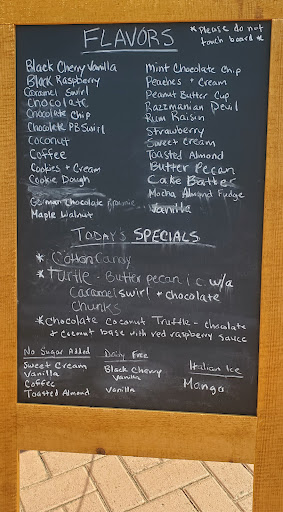 FLAVORS
*Please do not
touch board*
Black Cherry Vanilla
Black Raspberry
Caramel Swirl
CHOCOLATE
Chocolate Chip
Chocolate PB Swirl
Coconut
Coffee
Cookies + Cream
Cookie Dough
German Chocolate
Maple Walnut
Mint Chocolate Chip
Peaches + Cream
Peanut Butter Cup
Razzmanian Devil
Rum Raisin
Strawberry
Sweet Cream
Toasted Almond
Butter Pecan
Cake Batter
Mocha Almond Fudge
Vanilla
TODAY'S SPECIALS
* Cotton Candy
* Turtle - Butter pecan i.c. w/a
Caramel swirl + chocolate
Chunks
* Chocolate Coconut Truffle - chocolate
+ coconut base with red raspberry sauce
No Sugar Added
Sweet Cream
Vanilla
Coffee
Toasted Almond
Dairy Free
Black Cherry
Vanilla
Vanilla
Italian Ice
Mango